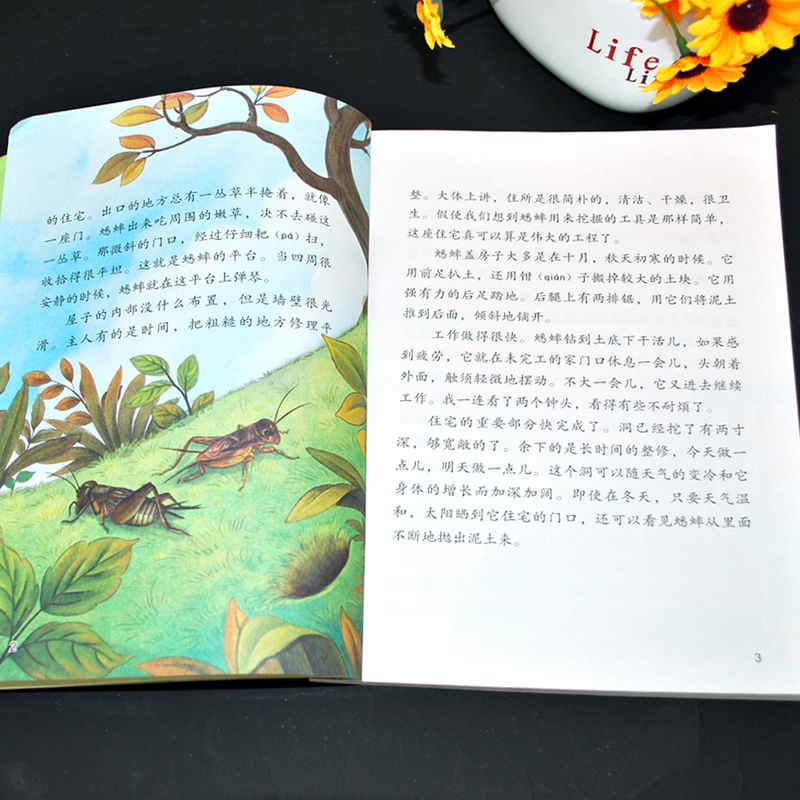 的住宅。出口的地方总有一丛草半掩着，就像
一座门。蟋蟀出来吃周围的嫩草，决不去碰这
一丛草。那微斜的门口，经过仔细耙（pá）扫，
收拾得很平坦。这就是蟋蟀的平台。当四周很
安静的时候，蟋蟀就在这平台上弹琴。
屋子的内部没什么布置，但是墙壁很光
滑。主人有的是时间，把粗糙的地方修理平
2
整。大体上讲，住所是很简朴的，清洁、干燥，很卫
生。假使我们想到蟋蟀用来挖掘的工具是那样简单，
这座住宅真可以算是伟大的工程了。
蟋蟀盖房子大多是在十月，秋天初寒的时候。它
用前足扒土，还用钳（qián）子搬掉较大的土块。它用
强有力的后足踏地。后腿上有两排锯，用它们将泥土
推到后面，倾斜地铺开。
工作做得很快。蟋蟀钻到土底下干活儿，如果感
到疲劳，它就在未完工的家门口休息一会儿，头朝着
外面，触须轻微地摆动。不大一会儿，它又进去继续
工作。我一连看了两个钟头，看得有些不耐烦了。
住宅的重要部分快完成了。洞已经挖了有两寸
深，够宽敞的了。余下的是长时间的整修，今天做一
点儿，明天做一点儿。这个洞可以随天气的变冷和它
身体的增长而加深加阔。即使在冬天，只要天气温
和，太阳晒到它住宅的门口，还可以看见蟋蟀从里面
不断地抛出泥土来。
3
Life